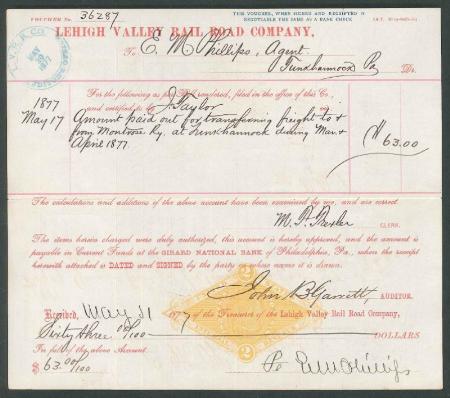 VOUCHER No. 36287
THIS VOUCHER, WHEN SIGNED AND RECEIPTED IS
NEGOTIABLE THE SAME AS A BANK CHECK
LEHIGH VALLEY RAIL ROAD COMPANY,
To E. M. Phillips, Agent
Tunkhannock Pa Dr.
L.V.R.R.Co.
MAY
1877
For the following as per Bill rendered, filed in the office of this Co.,
and certified to by J. Taylor
1877
May 17 Amount paid out for transferring freight to &
from Montrose Ry. at Tunkhannock during Mar. &
April 1877. $63.00
The calculations and additions of the above account have been examined by me, and are correct.
CLERK.
The items herein charged were duly authorized, this account is hereby approved, and the amount is
payable in Current Funds at the GIRARD NATIONAL BANK of Philadelphia, Pa., when the receipt
herewith attached is DATED and SIGNED by the party in whose name it is drawn.
John B Garrett, AUDITOR.
Received, May 31 1877 of the Treasurer of the Lehigh Valley Rail Road Company,
Sixty three 00/100 DOLLARS
In full of the above Account.
$63.00/100
2 2
E M Phillips